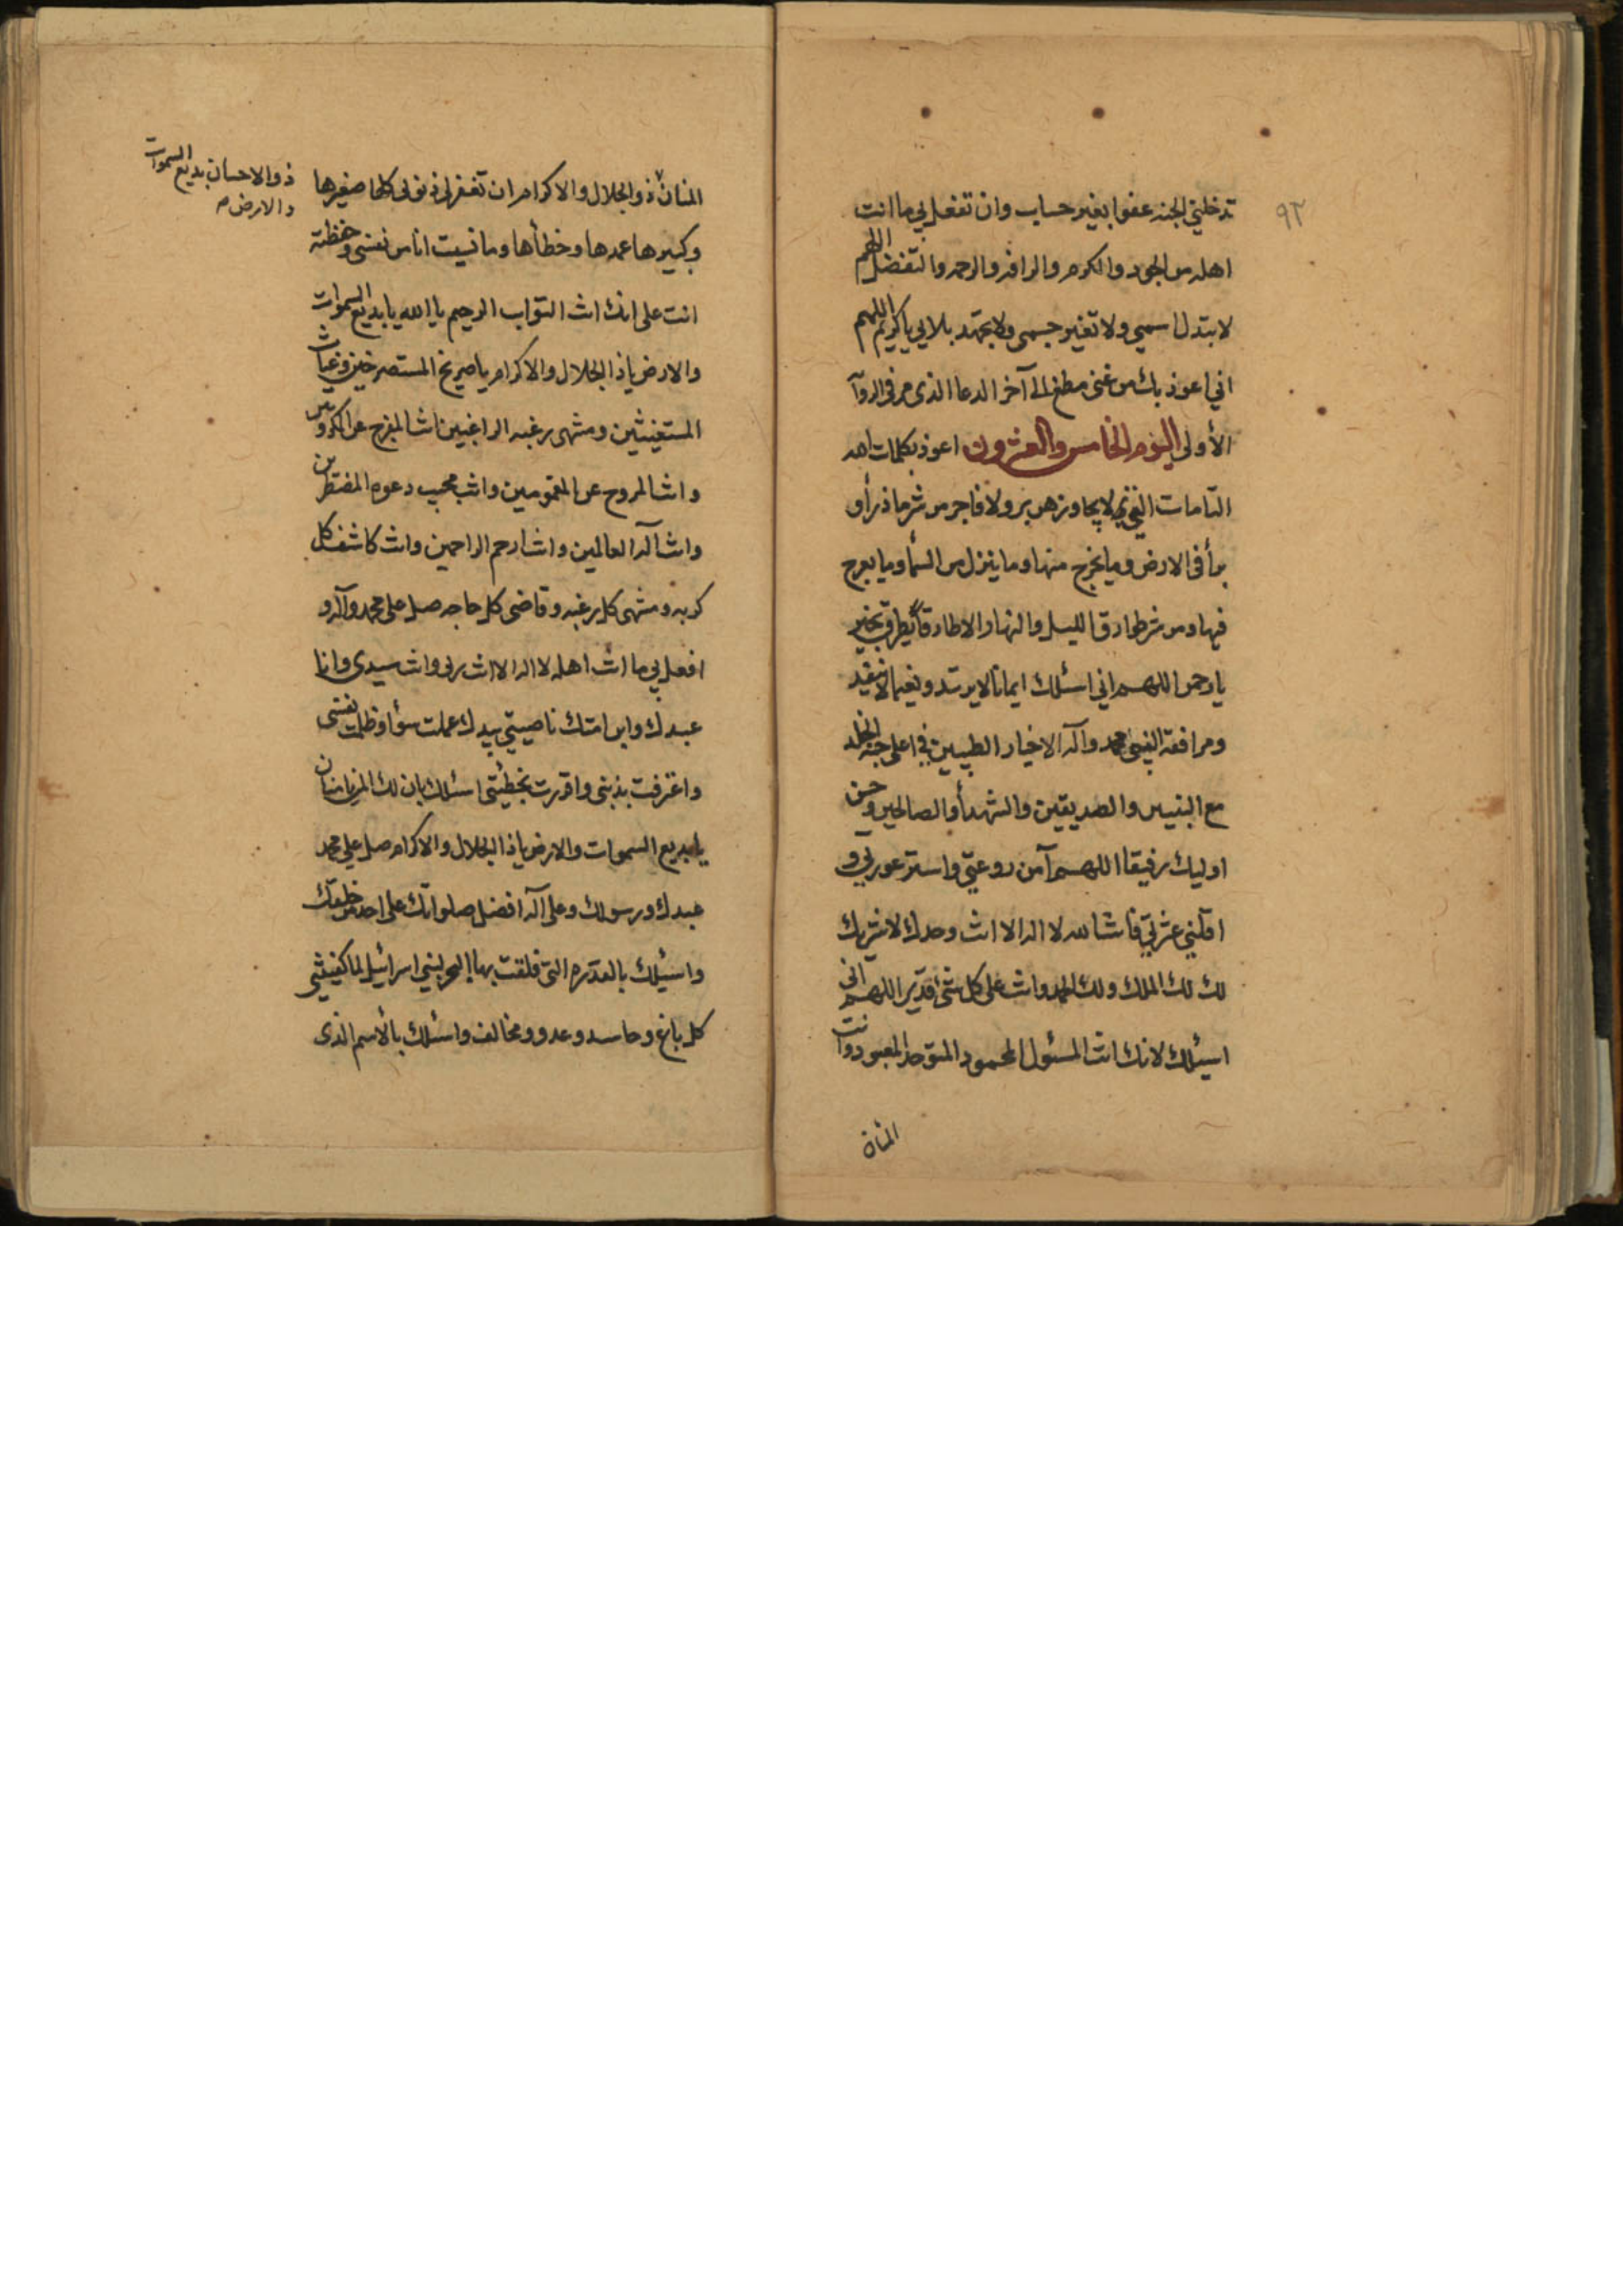 تدخلني الجنه عفوا بغير حساب وان تفعل بي ما انت
اهله من الجود والكرم والرافه والرحمه والتفضل اللهم
لا تبدل اسمي ولا تغير جسمي ولا تجهد بلايي يا كريم اللهم
اني اعوذ بك من غنى مطغ الى آخر الدعا الذى مر فى الروآ
الأولى اليوم الخامس والعشرون اعوذ بكلمات الله
التامات التي لا يجاوزهن بر ولا فاجر من شر ما ذرأ و
برأ فى الارض وما يخرج منها وما ينزل من السمأ وما يعرج
فيها ومن شر طوارق الليل والنهار الا طارقا يطرق بخير
يا رحمن اللهم اني اسئلك ايمانا لا يرتد ونعيما لا ينفد
ومرافقة النبى محمد وآله الاخيار الطيبين في اعلى جنة الخلد
مع النبيين والصديقين والشهدأ والصالحين وحسن
اوليك رفيقا اللهم آمن روعتي واستر عورتي و
اقلني عثرتي فانت الله لا اله الا انت وحدك لا شريك
لك لك الملك ولك الحمد وانت على كل شئ قدير اللهم اني
اسئلك لانك انت المسئول المحمود المتوحد المعبود وانت
المنان
٩٢
المنان ذو الجلال والاكرام ان تغفر لى ذنوبى كلها صغيرها
ذو الاحسان بديع السموات
والارض م
وكبيرها عمدها وخطأها وما نسيت انا من نفسى وحفظته
انت على انك انت التواب الرحيم يا الله يا بديع السموات
والارض يا ذا الجلال والاكرام يا صريخ المستصرخين وغياث
المستغيثين ومنتهى رغبه الراغبين انت المفرج عن المكروبين
وانت المروح عن المغمومين وانت مجيب دعوه المضطرين
وانت آله العالمين وانت ارحم الراحمين وانت كاشف كل
كربه ومنتهى كل رغبه وقاضى كل حاجه صل على محمد وآله و
افعل بي ما انت اهله لا اله الا انت ربى وانت سيدى وانا
عبدك وابن امتك ناصيتي بيدك عملت سؤا وظلمت نفسى
واعترفت بذنبى واقررت بخطيئتى اسئلك بان لك المن يا منان
يا بديع السموات والارض يا ذا الجلال والاكرام صل على محمد
عبدك ورسولك وعلى آله افضل صلواتك على احد من خلقك
واسئلك بالقدره التى فلقت بها البحر لبني اسرائيل لما كفيتني
كل باغ وحاسد وعدو ومخالف واسئلك بالأسم الذى